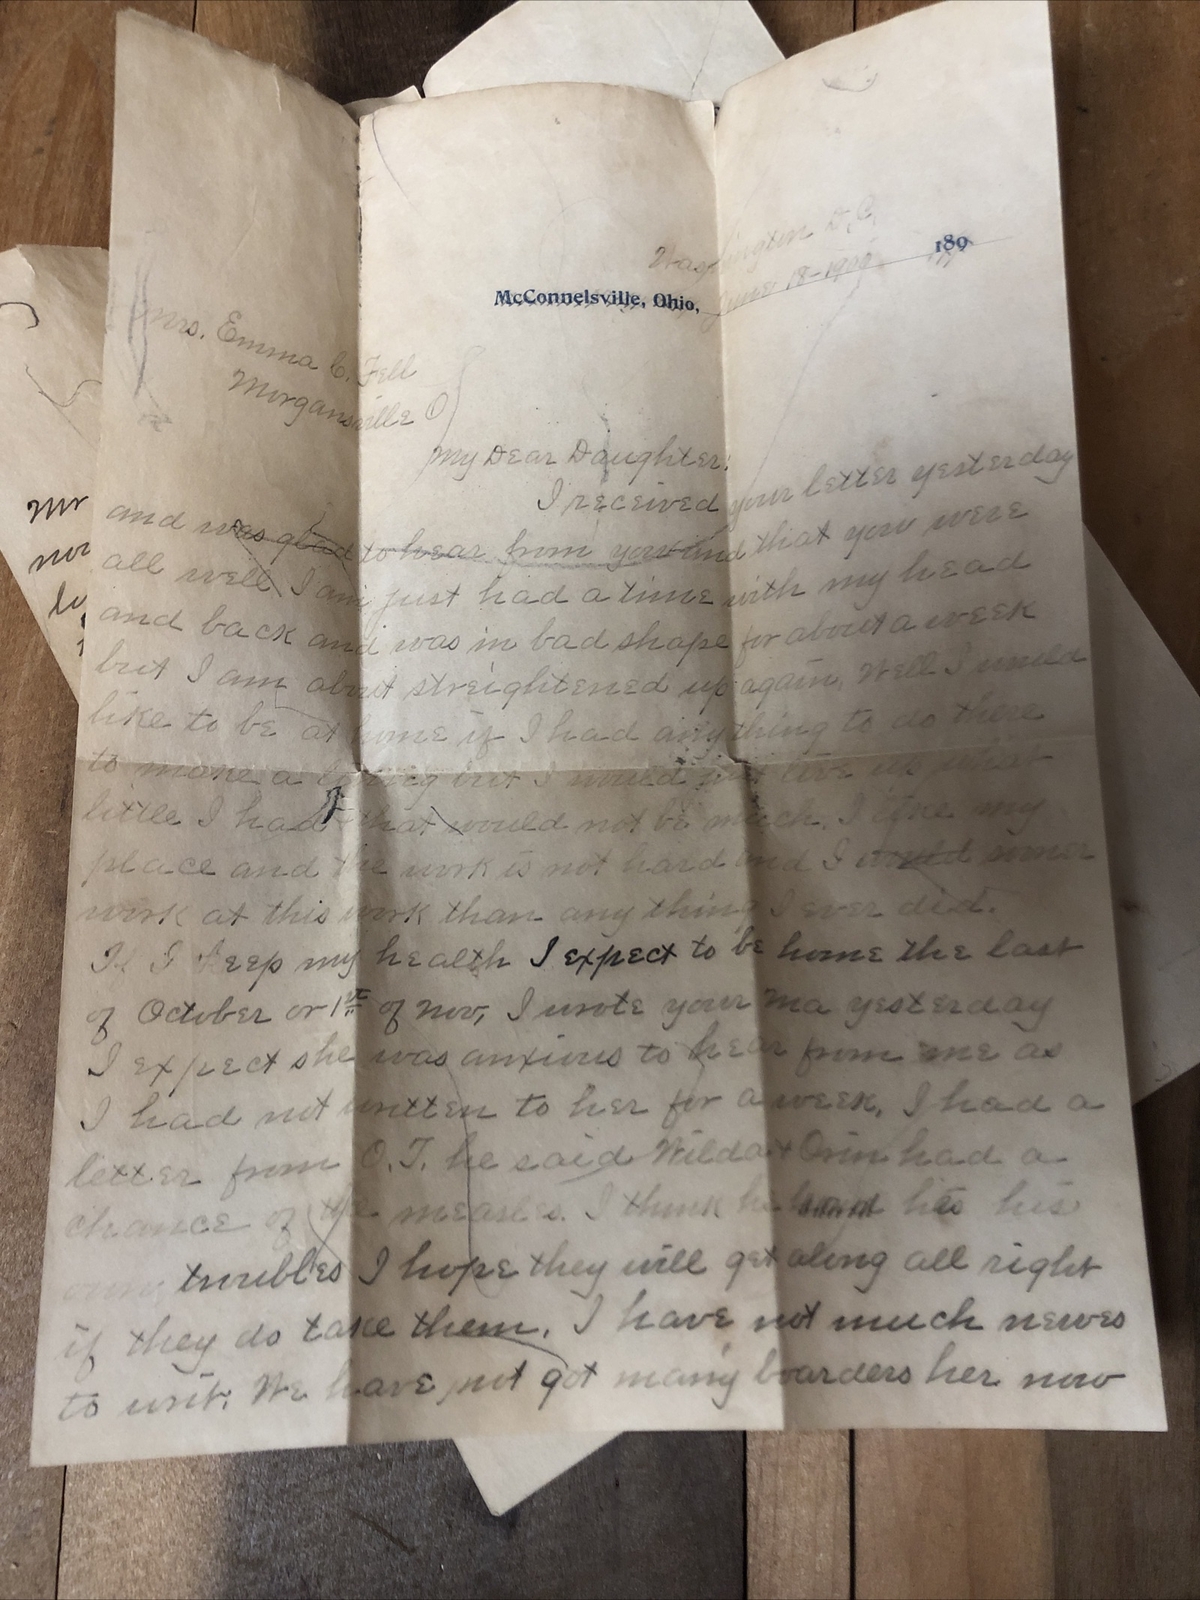 Washington D.C.
189
McConnelsville, Ohio, June 18-1900
Mrs. Emma C. Fell
Morgansville O
My Dear Daughter:
I received your letter yesterday
and was glad to hear from you and that you were
all well I am just had a time with my head
and back and was in bad shape for about a week
but I am about streightened up again. Well I would
like to be at home if I had anything to do there
to make a living but I would just live up what
little I had that would not be much. I like my
place and the work is not hard and I would sooner
work at this work than any thing I ever did.
If I keep my health I expect to be home the last
of October or 1st of Nov, I wrote your Ma yesterday
I expect she was anxious to hear from me as
I had not written to her for a week. I had a
letter from O.T. he said Wilda & Orin had a
chance of the measles. I think he has his
own troubles I hope they will get along all right
if they do take them. I have not much newes
to writ. We have not got many boarders her now
Mr